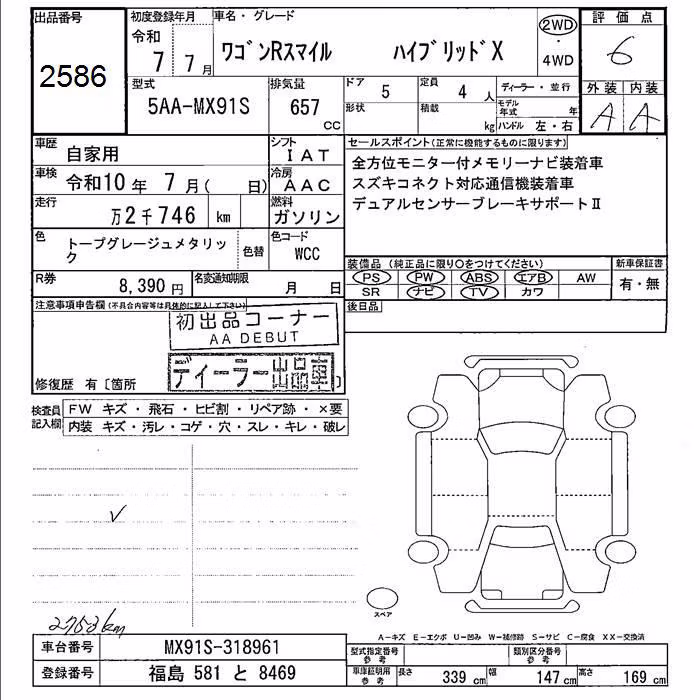 出品番号
2586
初度登録年月
令和
7 7月
車名・グレード
ワゴンRスマイル ハイブリッドX
2WD
・
4WD
評価点
6
外装 内装
A A
型式
5AA-MX91S
排気量
657
CC
ドア
5
定員
4 人
形状
積載
kg
ディーラー・並行
モデル年式 年
ハンドル 左・右
車歴
自家用
シフト
IAT
車検
令和10年 7月( 日)
冷房
AAC
走行
万2千746 km
燃料
ガソリン
色
トープグレージュメタリック
色替
色コード
WCC
R券
8,390円
名変通知期限
月 日
セールスポイント(正常に機能するものに限ります)
全方位モニター付メモリーナビ装着車
スズキコネクト対応通信機装着車
デュアルセンサーブレーキサポートⅡ
装備品(純正品に限り○をつけてください)
PS PW ABS エアB AW
SR ナビ TV カワ
新車保証書
有・無
後日品
注意事項申告欄(不具合内容等は具体的に記入して下さい)
初出品コーナー
AA DEBUT
ディーラー出品車
修復歴 有〔箇所 〕
検査員記入欄
FW キズ・飛石・ヒビ割・リペア跡・×要
内装 キズ・汚レ・コゲ・穴・スレ・キレ・破レ
✓
2753km
スペア
A-キズ E-エクボ U-凹み W-補修跡 S-サビ C-腐食 XX-交換済
車台番号
MX91S-318961
登録番号
福島 581 と 8469
型式指定番号
参考
類別区分番号
参考
車庫証明用
参考
長さ 339 cm
幅 147 cm
高さ 169 cm